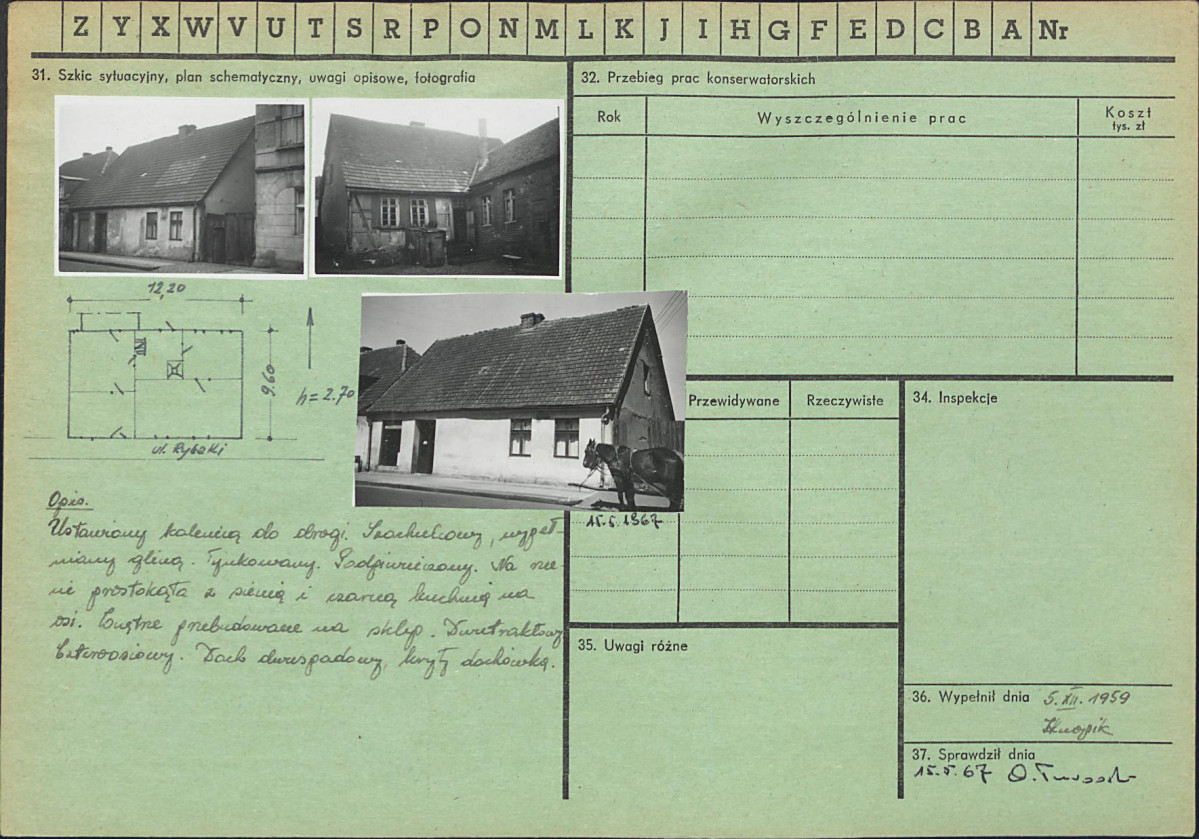 Z Y X W V U T S R P O N M L K J I H G F E D C B A Nr
31. Szkic sytuacyjny, plan schematyczny, uwagi opisowe, fotografia
12,20
9.60
h = 2.70
ul. Rybaki
Opis.
Ustawiony kalenicą do drogi. Szachulcowy, wypeł-
niany gliną. Tynkowany. Podpiwniczony. Na rzu-
cie prostokąta z sienią i czarną kuchnią na
osi. Wnętrze przebudowane na sklep. Dwutraktowy
Czteroosiowy. Dach dwuspadowy, kryty dachówką.
32. Przebieg prac konserwatorskich
Rok
Wyszczególnienie prac
Koszt
tys. zł
Przewidywane
Rzeczywiste
15.5.1967
34. Inspekcje
35. Uwagi różne
36. Wypełnił dnia 5.XII.1959
37. Sprawdził dnia
15.5.67